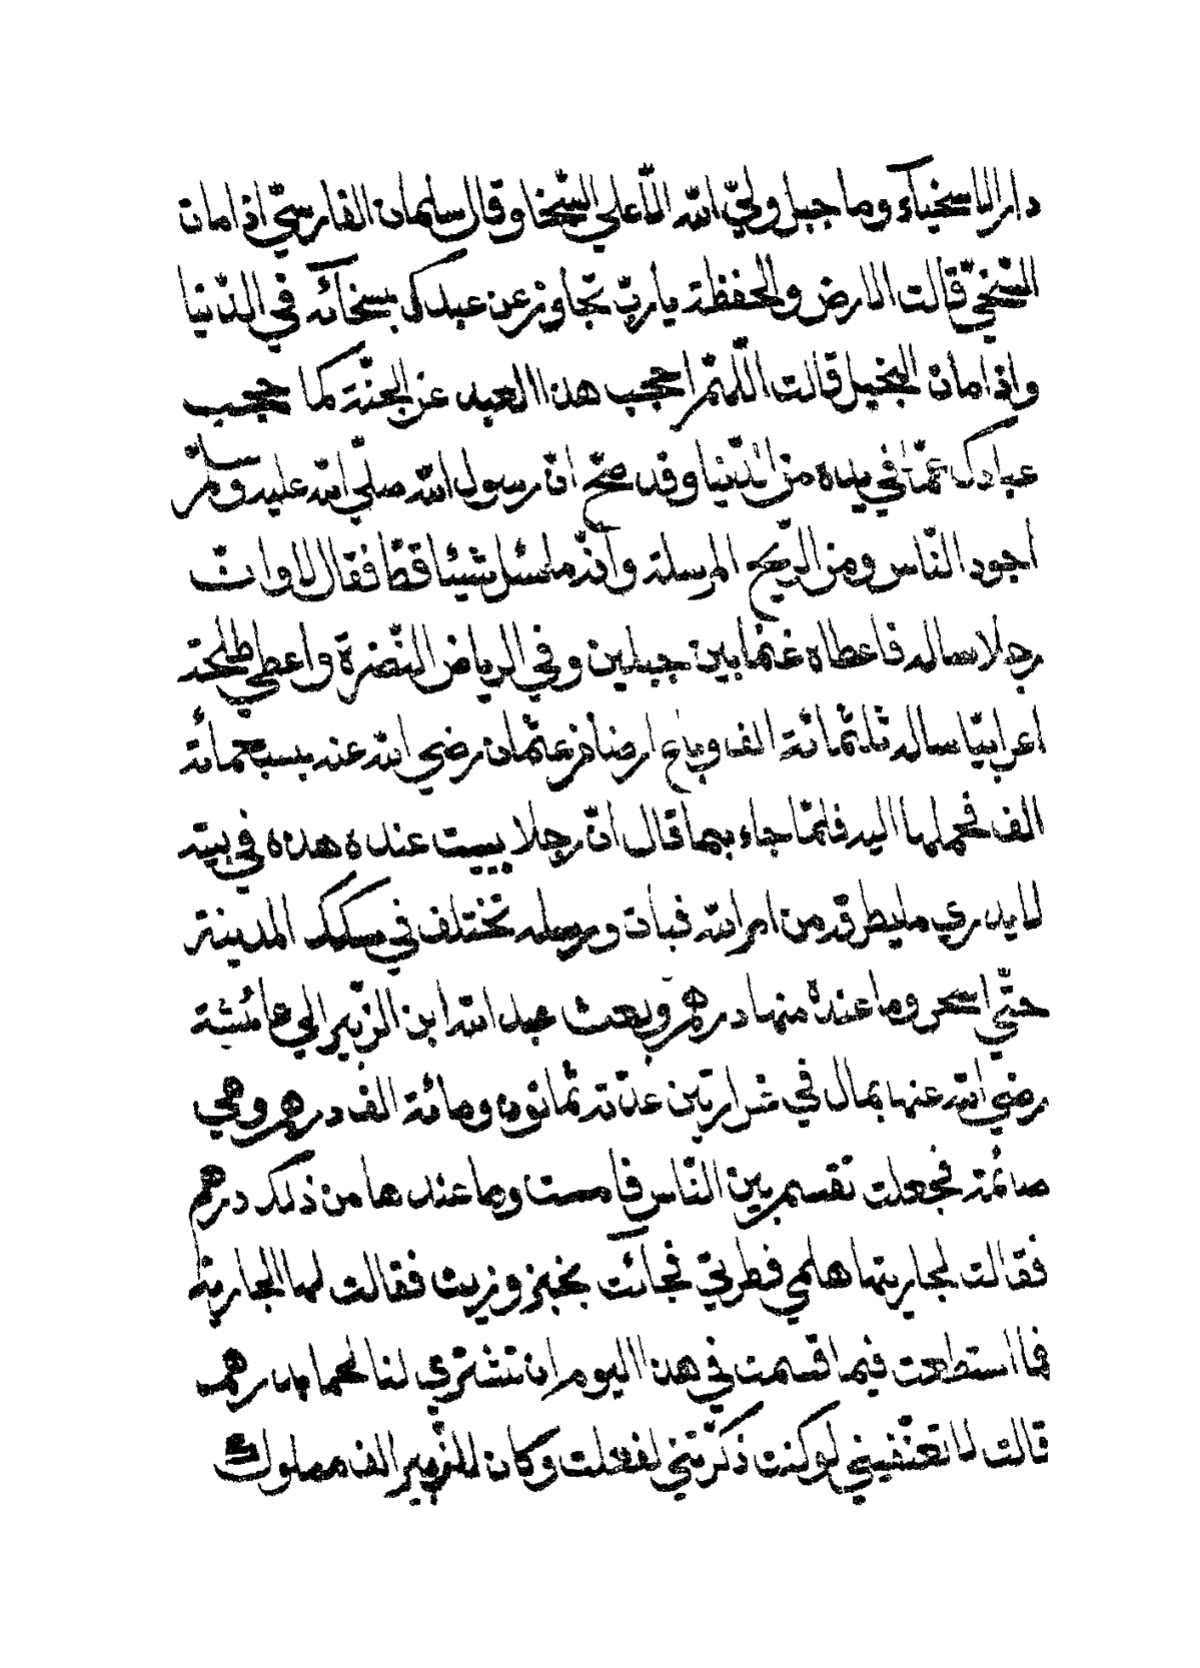 دار الاسخيآء وما جبل وليّ الله الّا علي السّخا وقال سلمان الفارسيّ اذا مات
السّخيّ قالت الارض والحفظة يا ربّ تجاوز عن عبدك بسخآئه في الدّنيا
واذا مات البخيل قالت اللّهمّ احجب هذا العبد عن الجنّة كما حجب
عبادك عمّا في يده من الدّنيا وقد صحّ انّ رسول الله صلّي الله عليه وسلّم
اجود النّاس ومن الرّيح المرسلة وانّه ما سئل شيئا قطّ فقال لا وانّ
رجلا ساله فاعطاه غنما بين جبلين وفي الرياض النّضرة واعطي طلحة
اعرابيّا ساله ثلثمائة الف وباع ارضا من عثمان رضي الله عنه بسبعمائة
الف فحملها اليه فلمّا جاء بها قال انّ رجلا يبيت عنده هذه في بيته
لا يدري ما يطرقه من امر الله فبات ورسله تختلف في سكك المدينة
حتّي اسحر وما عنده منها درهم وبعث عبد الله ابن الزّبير الي عائشة
رضي الله عنها بمال في غرارتين عدّته ثمانون ومائة الف درهم وهي
صائمة فجعلت تقسم بين النّاس فامست وما عندها من ذلك درهم
فقالت لجاريتها هلمي فطري فجائت بخبز وزيت فقالت لها الجارية
فما استطعت فيما قسمت في هذا اليوم ان تشتري لنا لحما بدرهم
قالت لا تعنّفيني لو كنت ذكّرتني لفعلت وكان للزّبير الف مملوك